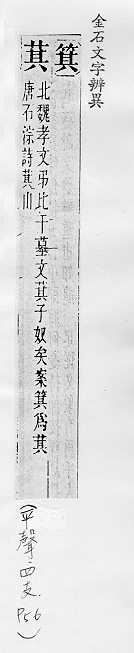 金石文字辨異
箕
萁
北魏孝文弔比干墓文萁子奴矣案箕爲萁
唐石淙詩萁山
(平聲.四支. P56)